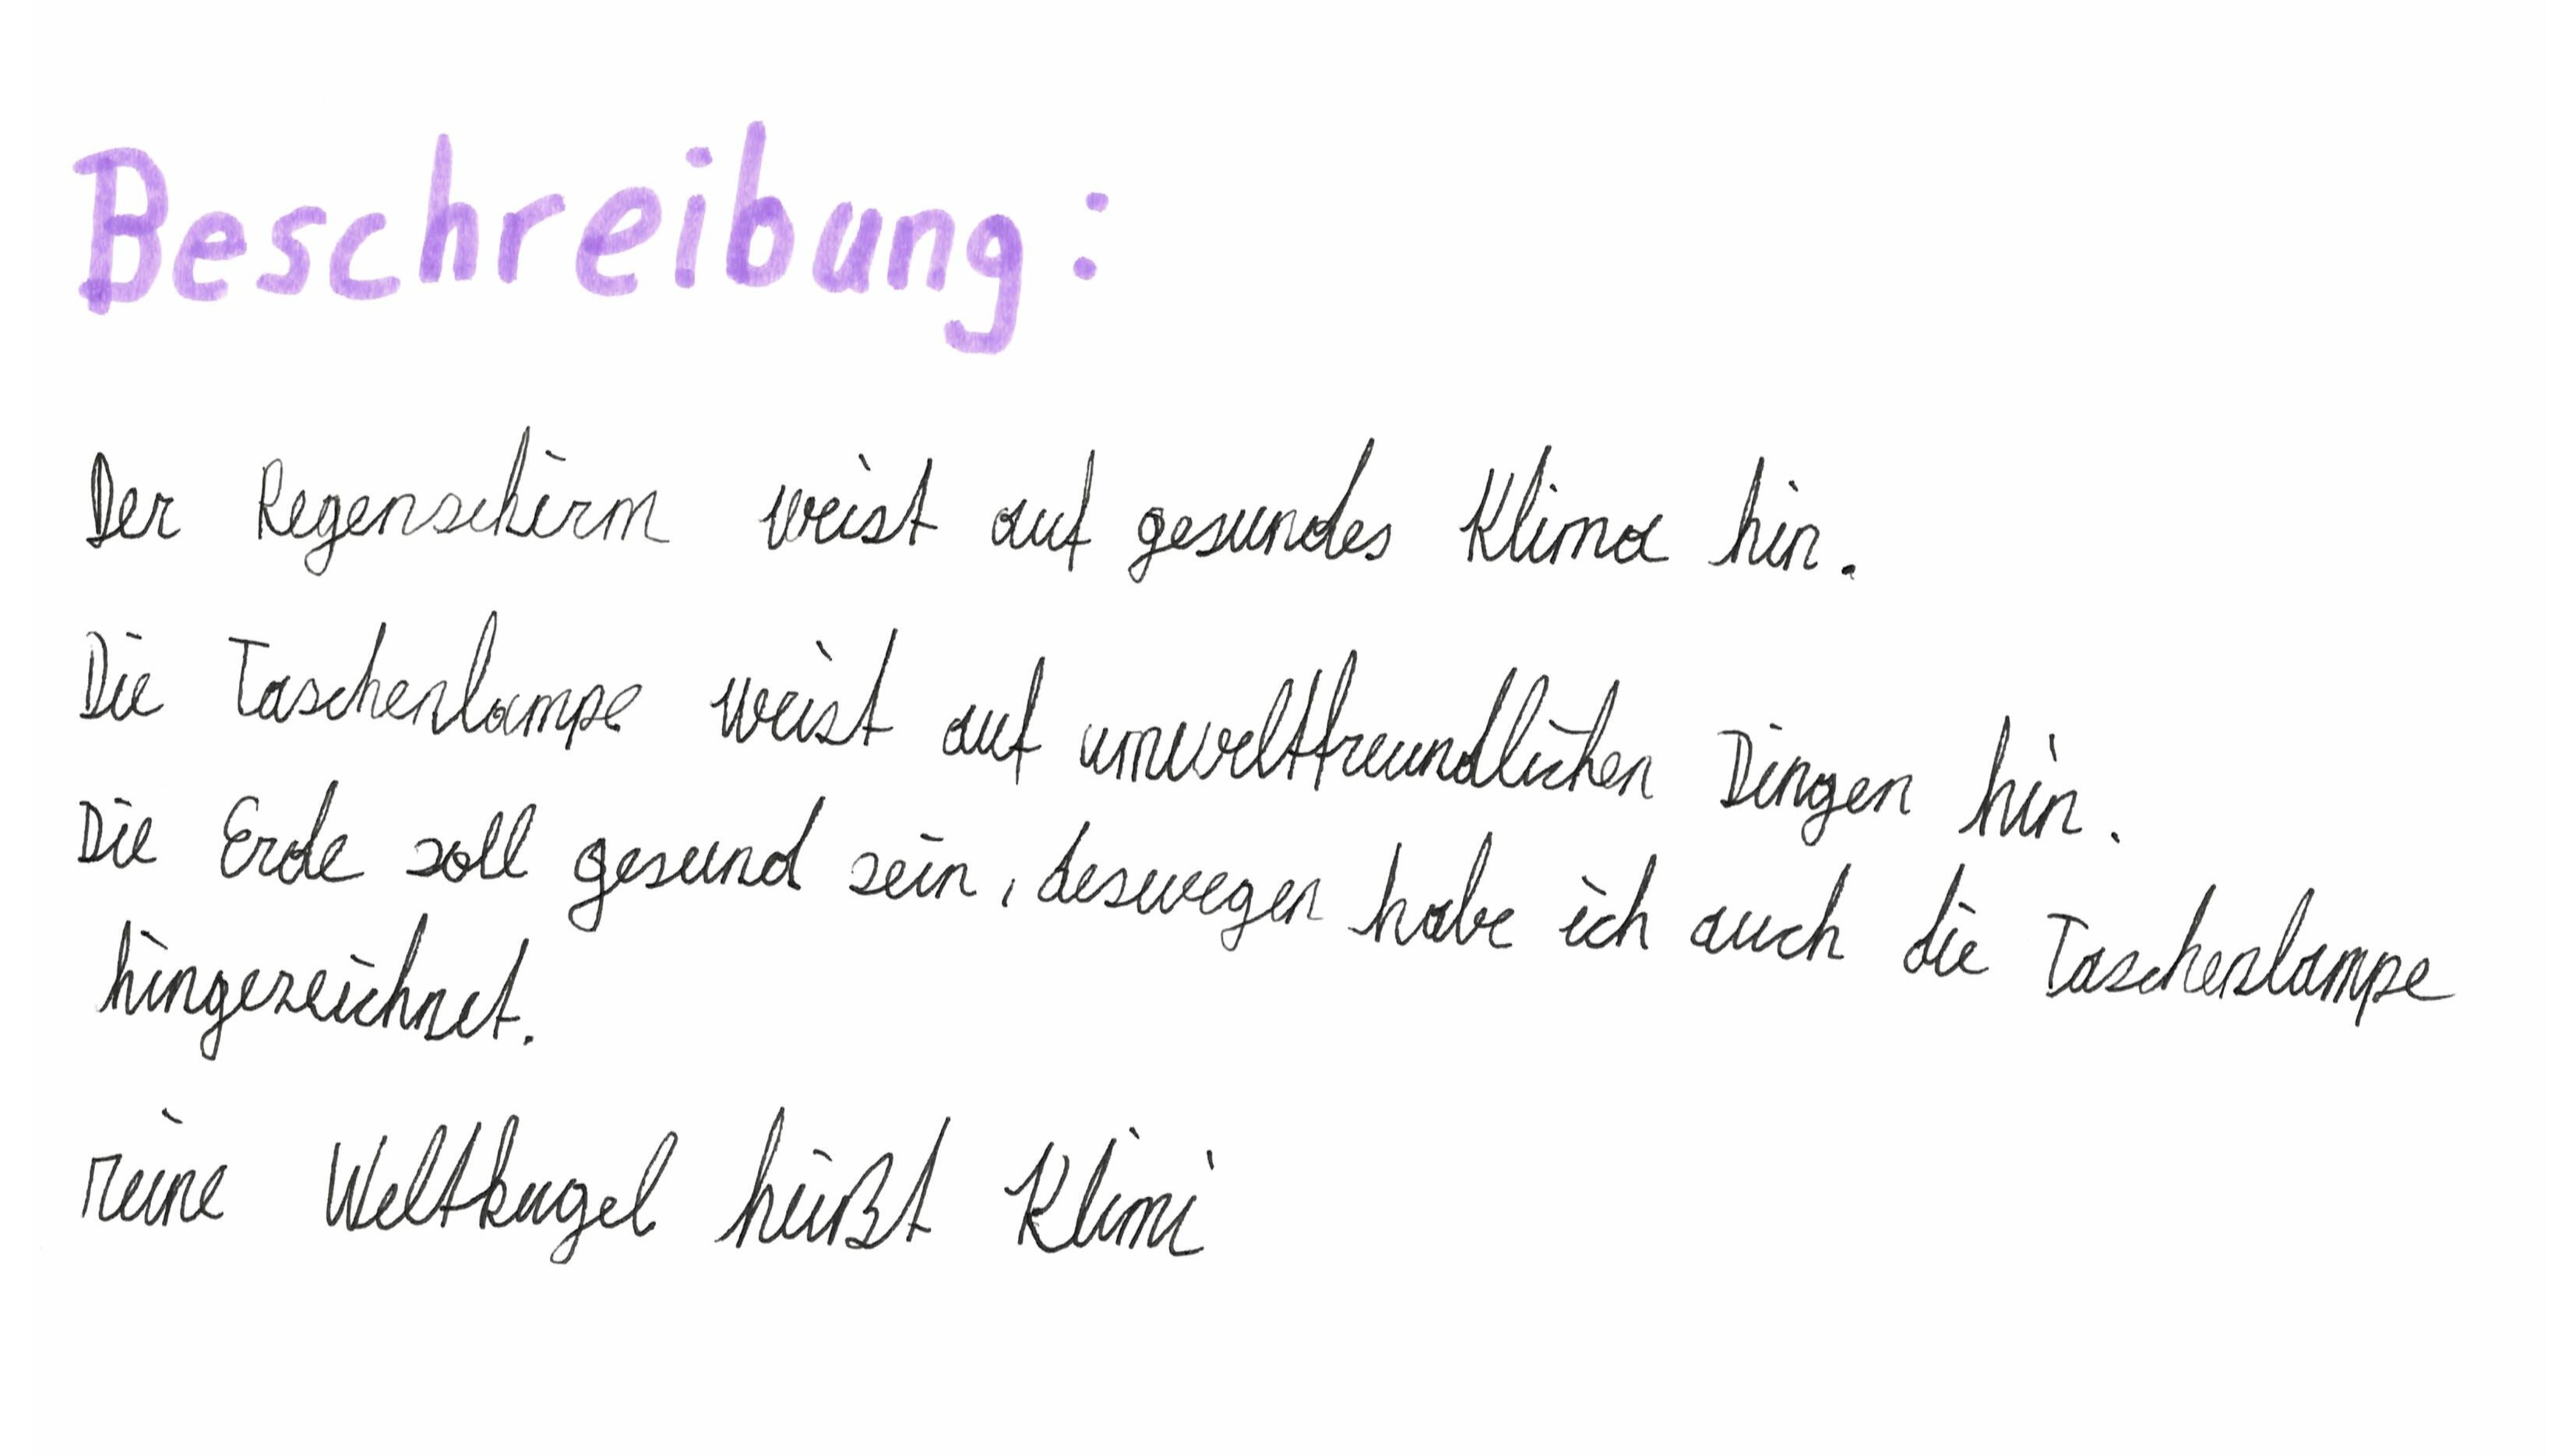 Beschreibung:
Der Regenschirm weist auf gesundes Klima hin.
Die Taschenlampe weist auf umweltfreundlichen Dingen hin.
Die Erde soll gesund sein, deswegen habe ich auch die Taschenlampe
hingezeichnet.
Meine Weltkugel heißt Klimi